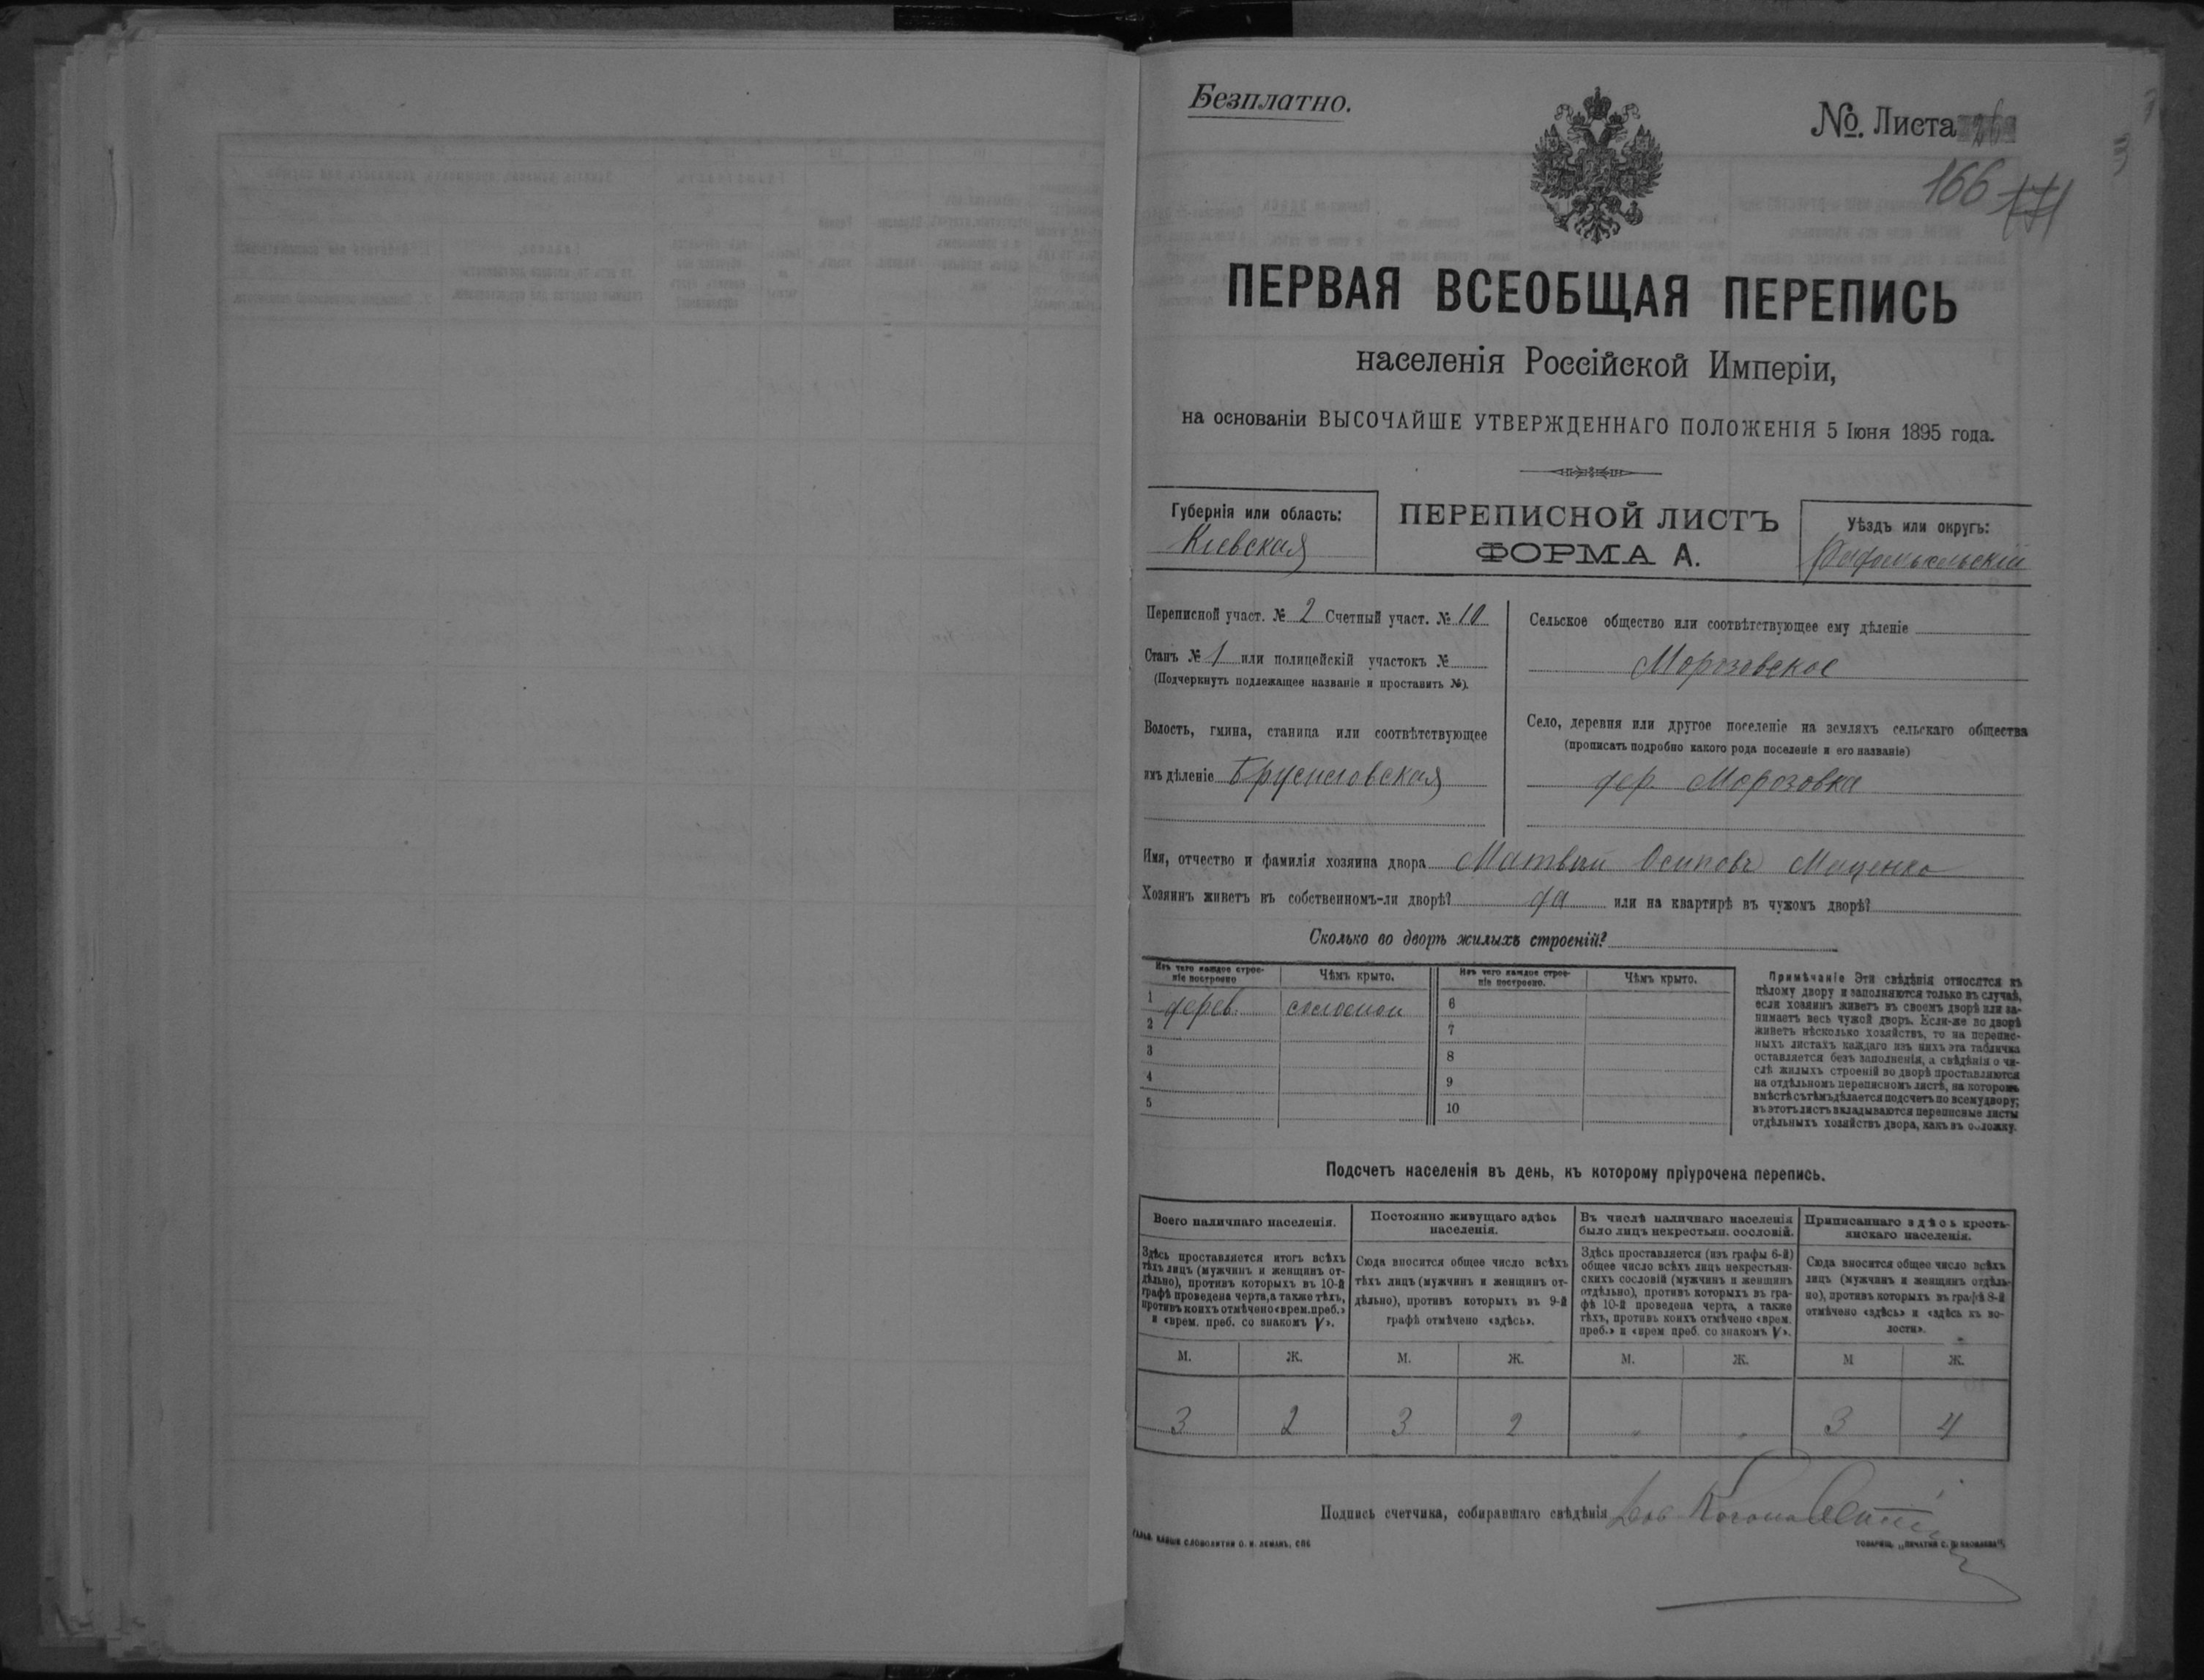 Безплатно.
№. Листа 26
166 171
ПЕРВАЯ ВСЕОБЩАЯ ПЕРЕПИСЬ
населенія Россійской Имперіи,
на основаніи ВЫСОЧАЙШЕ УТВЕРЖДЕННАГО ПОЛОЖЕНІЯ 5 Іюня 1895 года.
Губернія или область:
Кіевская
ПЕРЕПИСНОЙ ЛИСТЪ
ФОРМА А.
Уѣздъ или округъ:
Радомысльскій
Переписной участ. № 2 Счетный участ. № 10
Станъ № 1 или полицейскій участокъ №
(Подчеркнуть подлежащее названіе и проставить №).
Волость, гмина, станица или соотвѣтствующее
имъ дѣленіе Брусиловская
Сельское общество или соотвѣтствующее ему дѣленіе
Морозовское
Село, деревня или другое поселеніе на земляхъ сельскаго общества
(прописать подробно какого рода поселеніе и его названіе)
дер. Морозовка
Имя, отчество и фамилія хозяина двора Матвѣй Осиповъ Маценко
Хозяинъ живетъ въ собственномъ-ли дворѣ? да или на квартирѣ въ чужомъ дворѣ?
Сколько во дворѣ жилыхъ строеній?
Изъ чего каждое строе-
ніе построено
Чѣмъ крыто.
Изъ чего каждое строе-
ніе построено.
Чѣмъ крыто.
1 дерев. соломой 6
2 7
3 8
4 9
5 10
Примѣчаніе Эти свѣдѣнія относятся къ
цѣлому двору и заполняются только въ случаѣ,
если хозяинъ живетъ въ своемъ дворѣ или за-
нимаетъ весь чужой дворъ. Если-же во дворѣ
живетъ нѣсколько хозяйствъ, то на перепис-
ныхъ листахъ каждаго изъ нихъ эта табличка
оставляется безъ заполненія, а свѣдѣнія о чи-
слѣ жилыхъ строеній во дворѣ проставляются
на отдѣльномъ переписномъ листѣ, на которомъ
вмѣстѣ съ тѣмъ дѣлается подсчетъ по всему двору;
въ этотъ листъ вкладываются переписные листы
отдѣльныхъ хозяйствъ двора, какъ въ обложку.
Подсчетъ населенія въ день, къ которому пріурочена перепись.
Всего наличнаго населенія.
Здѣсь проставляется итогъ всѣхъ
тѣхъ лицъ (мужчинъ и женщинъ от-
дѣльно), противъ которыхъ въ 10-й
графѣ проведена черта, а также тѣхъ,
противъ коихъ отмѣчено «врем. преб.»
и «врем. преб. со знакомъ V».
Постоянно живущаго здѣсь
населенія.
Сюда вносится общее число всѣхъ
тѣхъ лицъ (мужчинъ и женщинъ от-
дѣльно), противъ которыхъ въ 9-й
графѣ отмѣчено «здѣсь».
Въ числѣ наличнаго населенія
было лицъ некрестьян. сословій.
Здѣсь проставляется (изъ графы 6-й)
общее число всѣхъ лицъ некрестьян-
скихъ сословій (мужчинъ и женщинъ
отдѣльно), противъ которыхъ въ гра-
фѣ 10-й проведена черта, а также
тѣхъ, противъ коихъ отмѣчено «врем.
преб.» и «врем преб. со знакомъ V».
Приписаннаго здѣсь кресть-
янскаго населенія.
Сюда вносится общее число всѣхъ
лицъ (мужчинъ и женщинъ отдѣль-
но), противъ которыхъ въ графѣ 8-й
отмѣчено «здѣсь» и «здѣсь къ во-
лости».
М. Ж. М. Ж. М. Ж. М Ж.
3 2 3 2 " " 3 4
Подпись счетчика, собиравшаго свѣдѣнія
СЛОВОЛИТНИ О. И. ЛЕМАНЪ, СПБ
ТОВАРИЩ. „ПЕЧАТНЯ С. П. ЯКОВЛЕВА“.